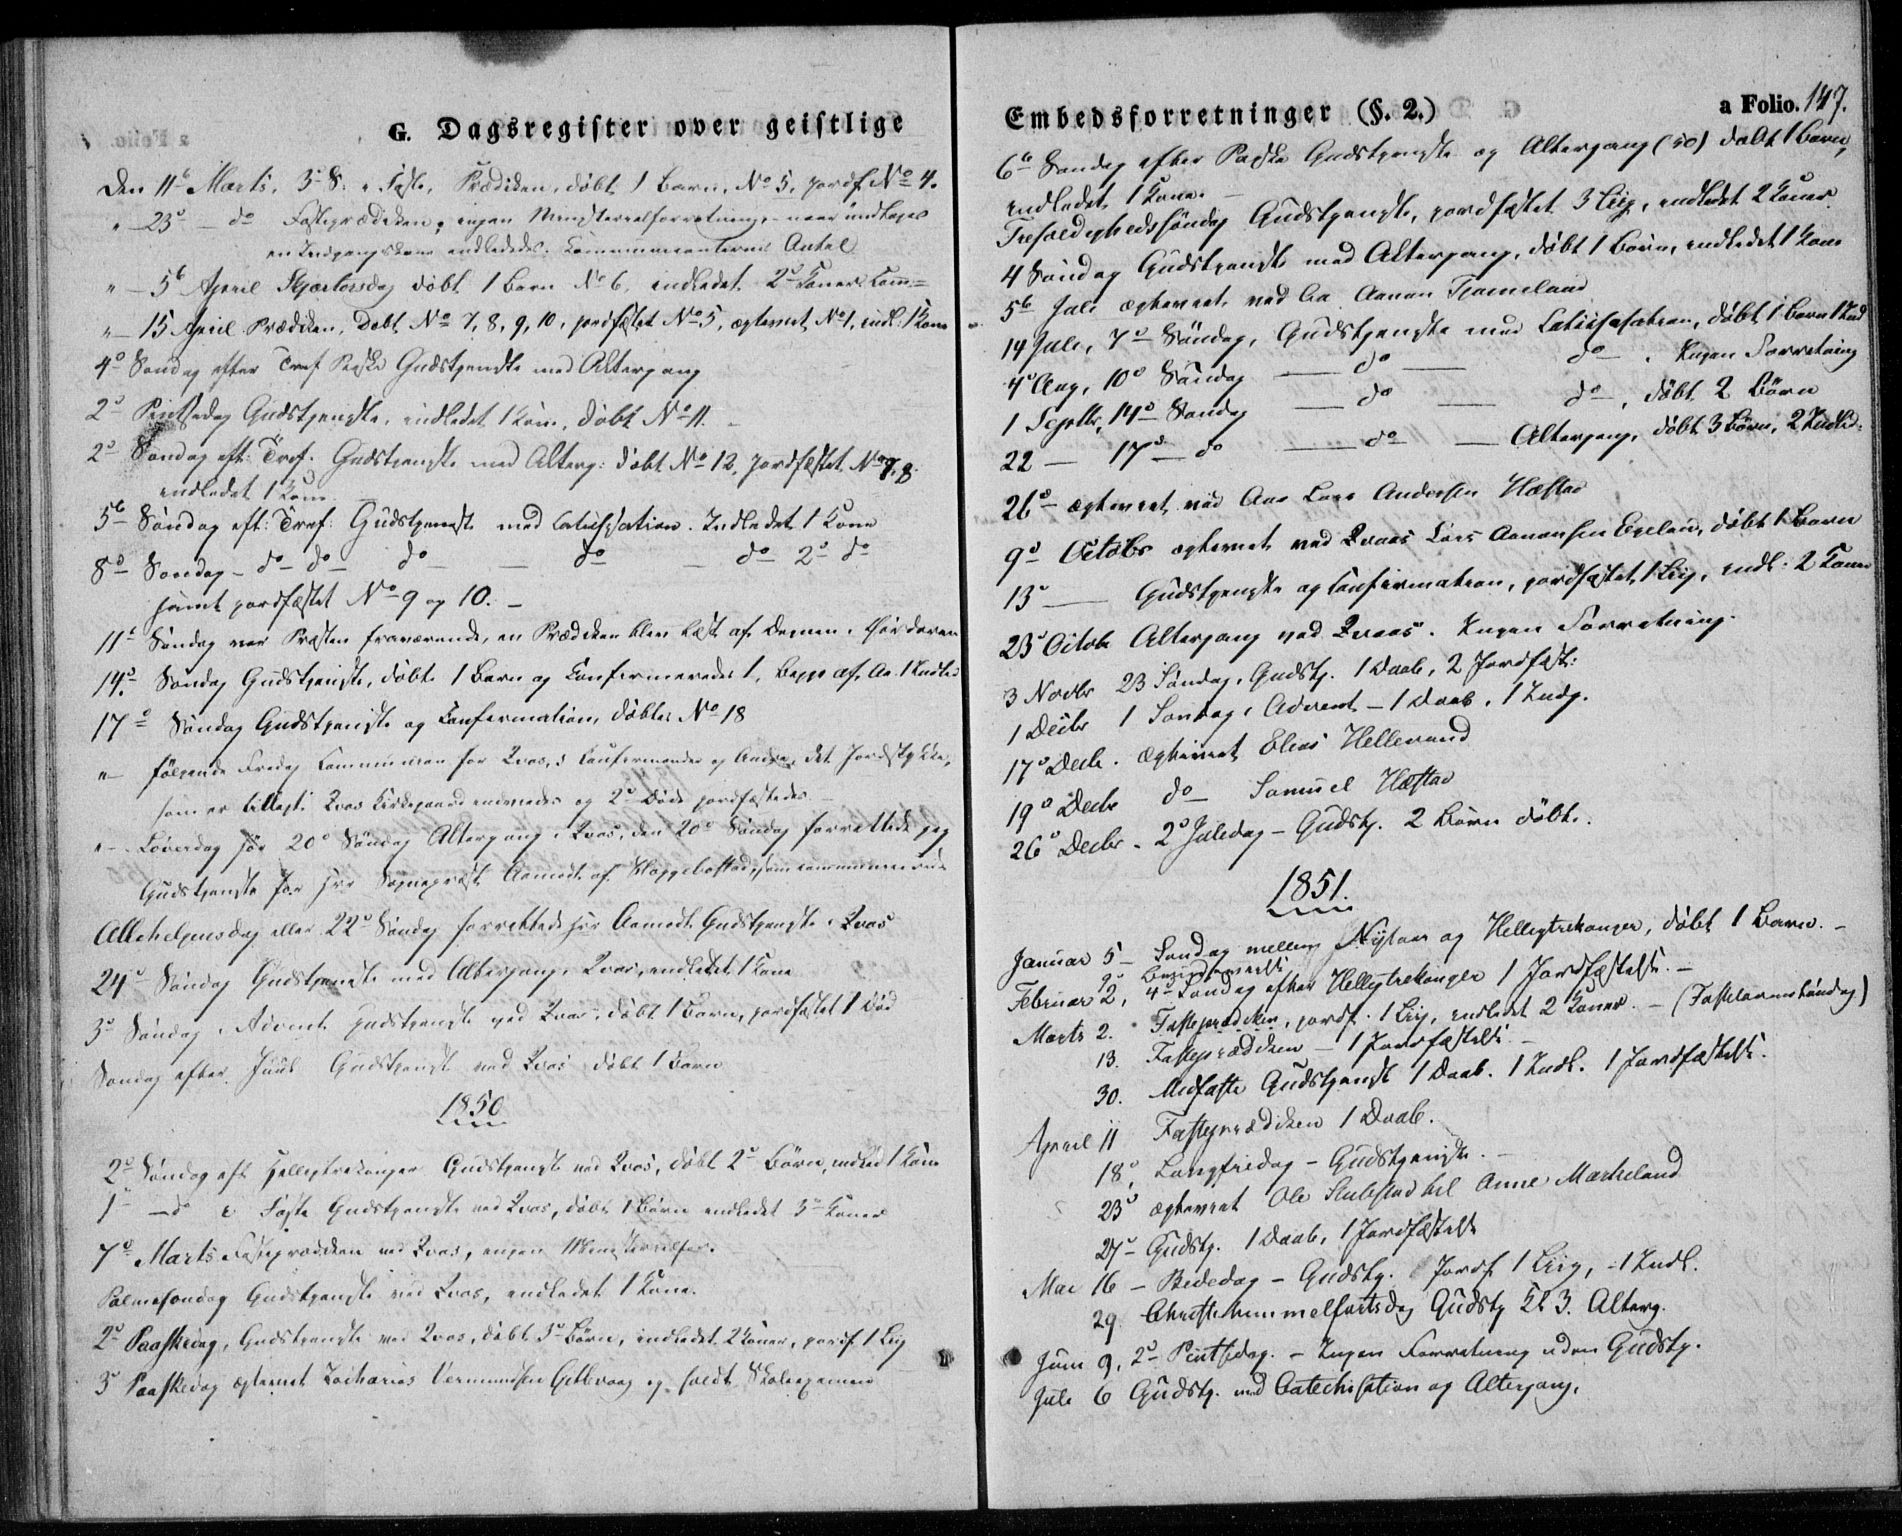 G. Dagsregister over geistlige
Den 11te Marts. 3die S: i Faste, Prædiken, døbt 1 Barn, No 5, jordf. No 4.
" 23de do Fasteprædiken, ingen Ministerialforretninger naar undtages
en Indgangskone indlededes. Communicanternes Antal
" 5te April Skjærtorsdag døbt 1 Barn No 6, indledet 2de Koner, Comm:
" 15 April Prædiken. Døbt No 7, 8, 9, 10, jordfæstet No 5, ægteviet No 1, indl. 1 Kone
4de Søndag efter Paaske Gudstjeneste med Altergang
2den Pintsedag Gudstjeneste, indledet 1 Kone, døbt No 11.
2den Søndag eft: Tref. Gudstjeneste med Alterg: døbt No 12, jordfæstet No 7, 8.
indledet 1 Kone.
5te Søndag eft: Tref: Gudstjeneste med Catechisation. Indledet 1 Kone
8de Søndag - do do do do do 2de do
samt jordfæstet No 9 og 10. -
11te Søndag var Præsten fraværende, en Prædiken blev læst af
14de Søndag Gudstjeneste, døbt 1 Barn og Confirmeredes 1,
17de Søndag Gudstjeneste og Confirmation, døbtes No 18
" følgende Fredag Communion for Qvas, Confirmander og Andre, det Jordstykke,
som er tillagt Qvas Kirkegaard indviedes og 2de Døde jordfæstedes
" Løverdag før 20de Søndag Altergang i Qvas, den 20de Søndag forrettede jeg
Gudstjeneste for Hr Sognepræst Aamodt af Hæggebostad, som communicerede
Allehelgensdag eller 22de Søndag forrettede Hr Aamodt Gudstjeneste i Qvas
24de Søndag Gudstjeneste med Altergang i Qvas, indledet 1 Kone
3de Søndag i Advent Gudstjeneste ved Qvas, døbt 1 Barn, jordfæstet 1 Død
Søndag efter Juul Gudstjeneste ved Qvas døbt 1 Barn
1850
2den Søndag eft Helligtrekonger Gudstjeneste ved Qvas, døbt 2de Børn, indled 1 Kone
1ste do i Faste Gudstjeneste ved Qvas, døbt 1 Børn indledet 3de Koner
7de Marts Fasteprædiken ved Qvas, ingen Ministerialfor.
Palmesøndag Gudstjeneste ved Qvas, indledet 1 Kone.
2den Paaskedag, Gudstjeneste ved Qvas, døbt 3de Børn, indledet 2 Koner, jordf. 1 Liig
3die Paaskedag ægteviet Zacharias Vermundsen Gitlevaag og holdt Skoleexamen
Embedsforretninger (§. 2.)
a Folio. 147.
6te Søndag efter Paaske Gudstjeneste og Altergang (50) døbt 1 Barn,
indledet 1 Kone.
Trefoldighedssøndag Gudstjeneste, jordfæstet 3 Liig, indledet 2 Koner.
4 Søndag Gudstjeneste med Altergang, døbt 1 Barn, indledet 1 Kone
5te Juli ægteviet ved Aanen Tjomeland
14 Juli, 7de Søndag, Gudstjeneste med Catechisation, døbt 1 Barn 1 Ind
4de Aug, 10de Søndag do do. Ingen Forretning
1 Septbr, 14de Søndag do do, døbt 2 Børn
22 - 17de do do Altergang, døbt 3 Børn, 2 Indled:
26de ægteviet ved Lars Andersen Hæstad
9de Octobr ægteviet ved Qvaas Lars Aanensen Egeland, døbt 1 Barn
13de Gudstjeneste og Confirmation, jordfæstet 1 Liig, indl: 2 Koner
23de Octobr Altergang ved Qvaas. Ingen Forretning.
3 Novbr 23 Søndag, Gudstj. 1 Daab, 2 Jordfæst:
1 Decbr 1 Søndag i Advent - 1 Daab, 1 Indg.
17de Decbr. Ægteviet Elias Hellerund
19de Decbr do Samuel Hæstad
26de Decbr. 2den Juledag - Gudstj. 2 Børn døbte.
1851.
Januar 5 - Søndag mellem Nytaar og Helligtrekonger, døbt 1 Barn. -
Februar 2, 4de Søndag efter Helligtrekonger 1 Jordfæstelse. -
Marts 2. Fasteprædiken, jordf. 1 Liig, indledet 2 Koner. - (Fastelavnssøndag)
13. Fasteprædiken - 1 Jordfæstelse. -
30. Midfaste Gudstjeneste 1 Daab. 1 Indl. 1 Jordfæstelse.
April 11 Fasteprædiken 1 Daab.
18de, Langfredag - Gudstjeneste. -
23de ægteviet Ole Stubstad til Anne Mærkeland
27de Gudstj. 1 Daab, 1 Jordfæstelse
Mai 16 - Bededag - Gudstj. Jordf 1 Liig, - 1 Indl.
29 Christi himmelfartsdag Gudstj Kl 3. Alterg.
Juni 9, 2den Pintsedag. - Ingen Forretning uden Gudstj.
Juli 6 Gudstj. med Catechisation og Altergang.